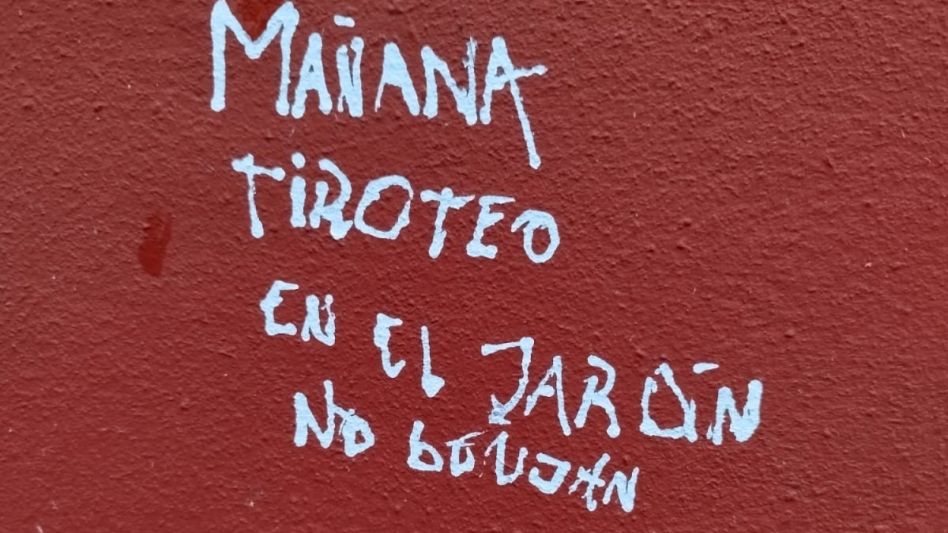 MAÑANA
TIROTEO
EN EL JARDÍN
NO bENJAN